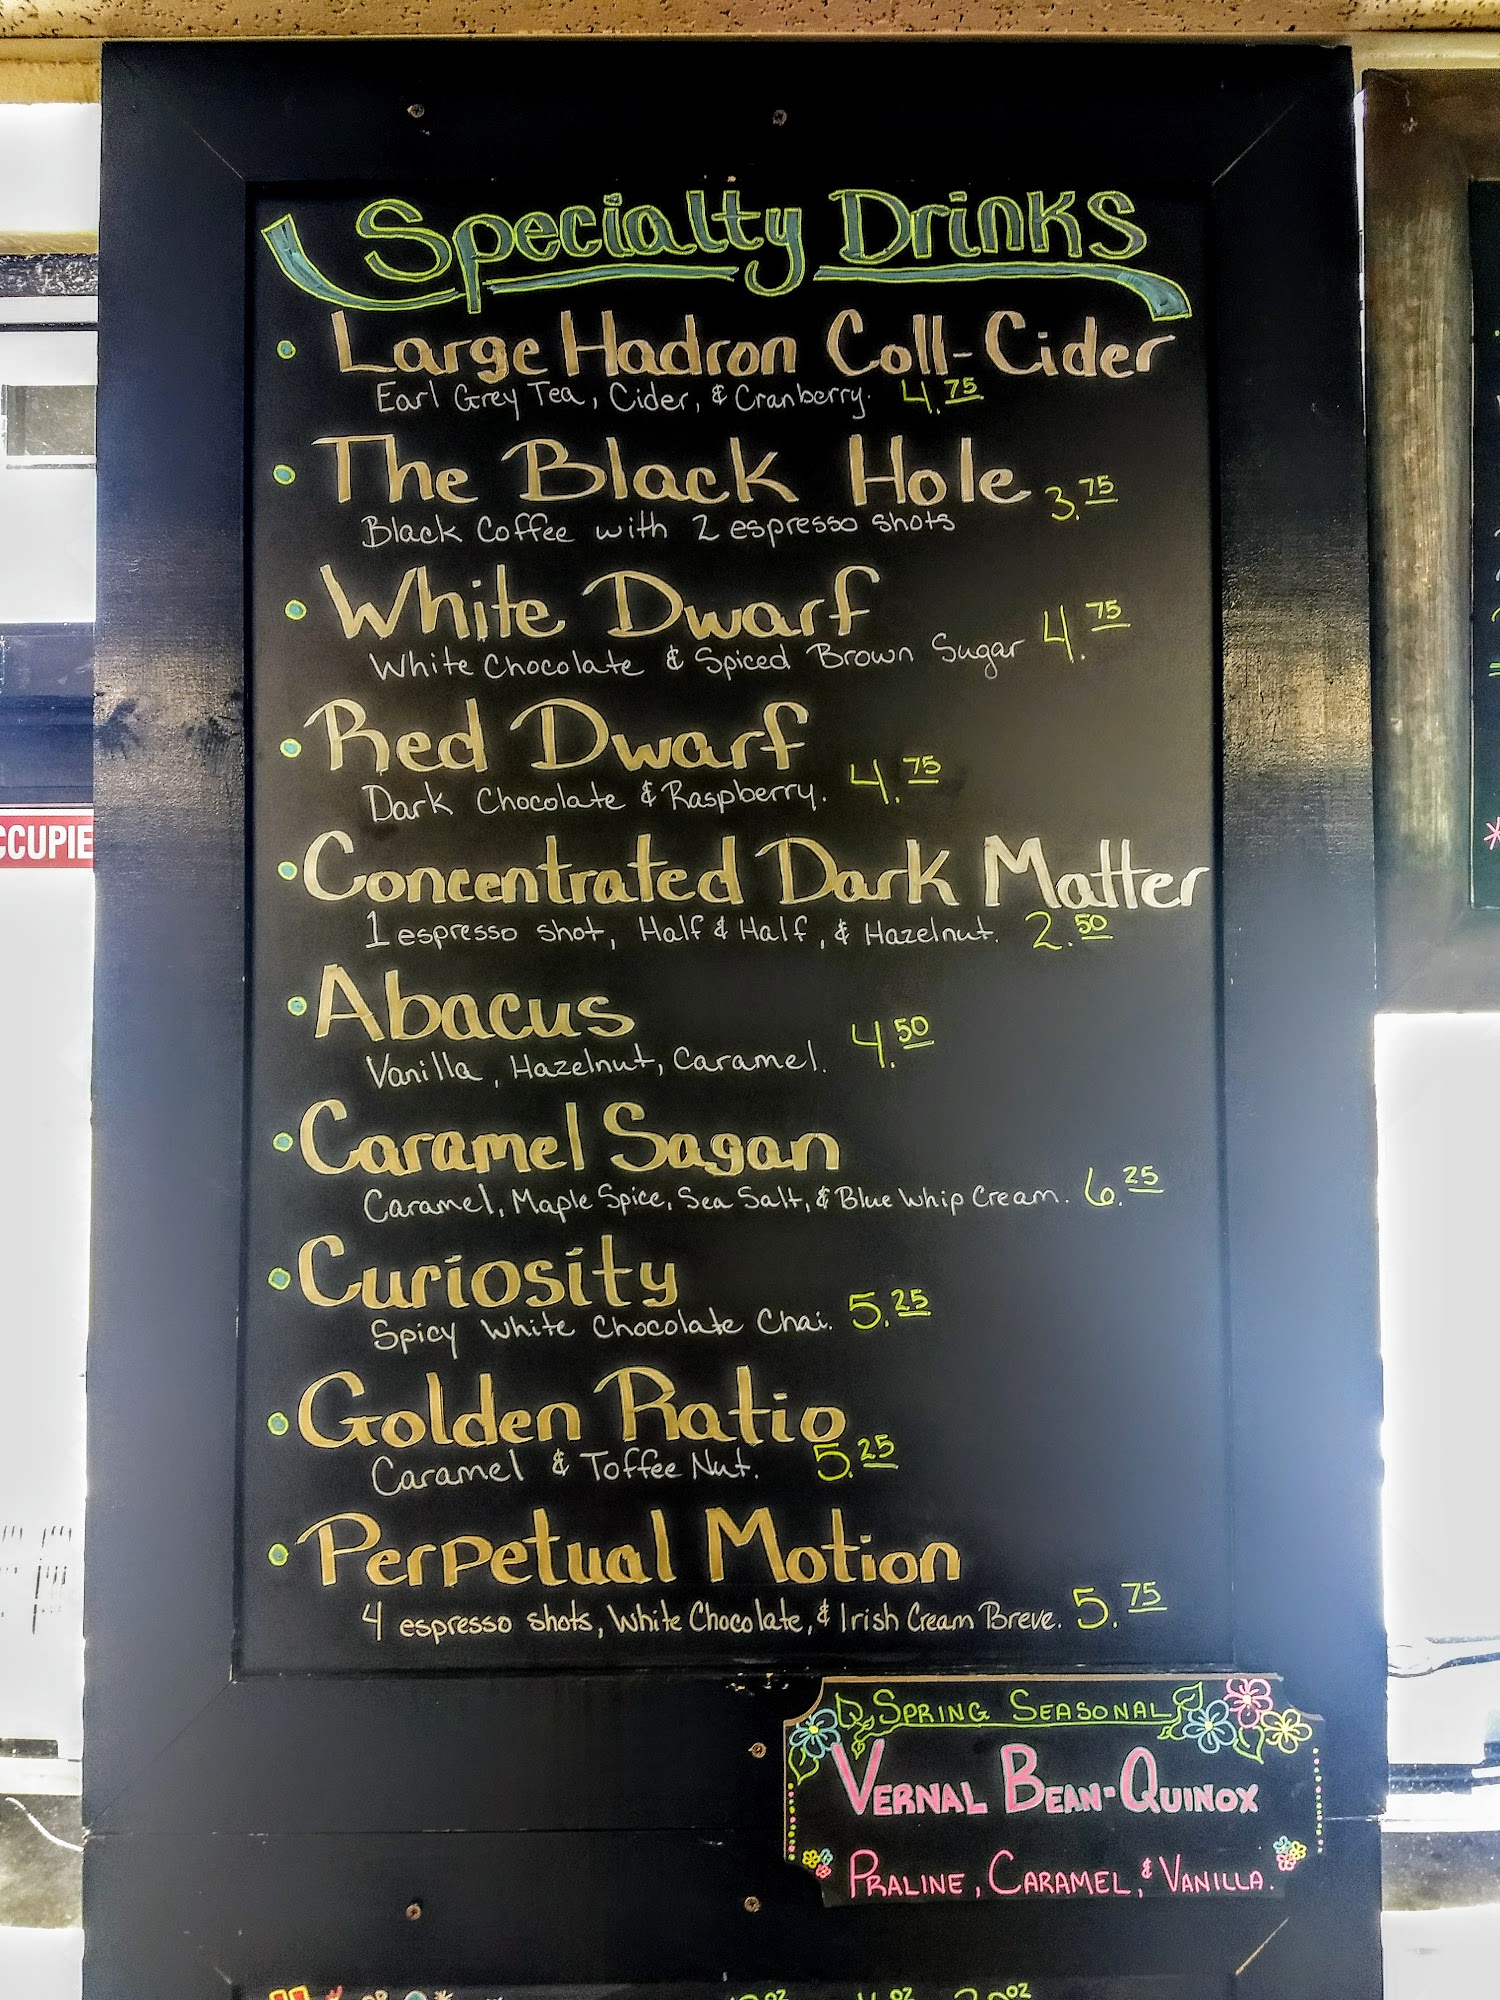 Specialty Drinks
• Large Hadron Coll-Cider
Earl Grey Tea, Cider, & Cranberry. 4.75
• The Black Hole 3.75
Black Coffee with 2 espresso shots
• White Dwarf
White Chocolate & Spiced Brown Sugar 4.75
• Red Dwarf
Dark Chocolate & Raspberry. 4.75
• Concentrated Dark Matter
1 espresso shot, Half & Half, & Hazelnut. 2.50
• Abacus
Vanilla, Hazelnut, Caramel. 4.50
• Caramel Sagan
Caramel, Maple Spice, Sea Salt, & Blue Whip Cream. 6.25
• Curiosity
Spicy White Chocolate Chai. 5.25
• Golden Ratio
Caramel & Toffee Nut. 5.25
• Perpetual Motion
4 espresso shots, White Chocolate, & Irish Cream Breve. 5.75
Spring Seasonal
Vernal Bean-Quinox
Praline, Caramel, & Vanilla.
CCUPIE